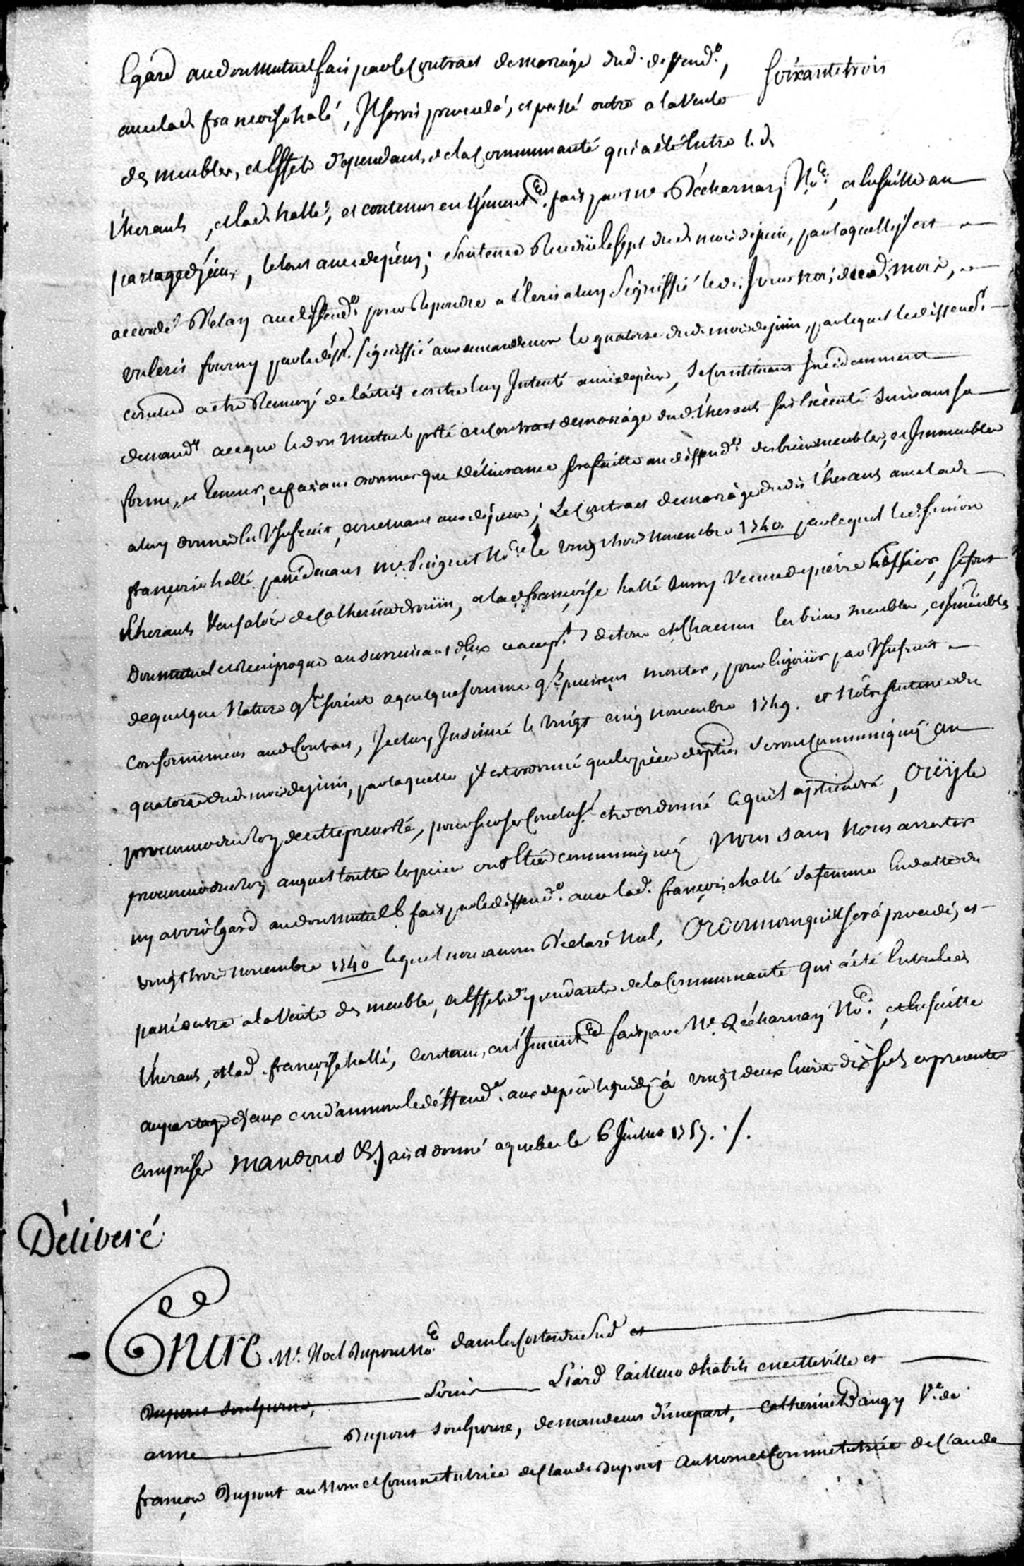 Egard au don mutuel fait par le Contract de mariage dud. deffend.r,
soixante trois
avec lad. francoise halé, Il sera procedé, et passé outre a la vente
des meubles, et Effets dependants de la Communauté qui a été Entre led.
therault, et lad. hallé, et contenus en l'Inventre. fait par me. Décharnay Nre., et Ensuitte au
partage d'jceux, le tout avec depens; Sentence Rendüe le sept dud. mois de juin, par laquelle jl est
accordé Delay au deffendr. pour Repondre a l'Ecrit a luy Signiffié led. jour trois dud. mois,
un Ecrit fourny par le deffr. signiffié aux demandeurs le quatorze dud. mois de juin, par lequel le deffendr.
conclud a etre Renvoyé de l'action contre luy Intenté avec depens, se Constituant Incidemment
demandr. a ce que le don Mutuel porté au Contract de mariage dud. therault soit Executé suivant sa
forme, et teneur, ce faisant ordonner que délivrance soit faitte au deffendr. des biens meubles, et Immeubles
a luy donnés en Usufruit, concluant aux dépens; Le Contract de mariage dudit therault avec lad.
françoise hallé passé devant me. Pinguet Nre. le vingt trois novembre 1740 par lequel led. simon
therault Veuf de Catherine drouin, et lad. françoise hallé aussy Veuve de pierre , se font
Don mutuel et Reciproque au survivant d'Eux de tous et Chacuns les biens meubles, et Immeubles
de quelque Nature qu'ils soient a quelque somme qu'ils puissent monter, pour En jouir par Usufruit
Conformement aud. Contrat, Jceluy Insinué le vingt cinq novembre 1749. et Nôtre sentence du
quatorze dud. mois de juin, par laquelle jl est ordonné que les pieces des parties seront Communiquées au
procureur du Roy de cette prevosté, pour sur ses Concluss. etre ordonné ce qu'il apartiendra, Oüy le
procureur du Roy auquel toutte les pieces ont Eté communiquées Nous sans Nous arrester
ny avoir Egard au don Mutuel fait par le deffendr. avec lad. françoise hallé sa femme En datte du
vingt trois novembre 1740 lequel nous avons Déclaré Nul, Ordonnons qu'il sera procedé, et
passé outre a la Vente des meubles, et Effets dependants de la Communauté qui a été Entre led.
therault, et lad. françoise hallé, contenus, en l'Inventre. fait par Me. Décharnay Nre., et Ensuitte
au partage d'jceux condamnons le deffendr. aux depens liquidés à vingt deux livres dix sols ces presentes
comprises Mandons &c. fait et donné a quebec le 6 juillet 1757. ./.
Déliberé
Entre Me. Noel Dupont Nre. dans les Costes du Sud et
Dupont son Epouse, Louis Liard Tailleur d'habits en cette ville et
anne Dupont son Epouse, demandeurs d'une part, Catherine Dangy Ve. de
françois Dupont au Nom et Comme tutrice de Claude Dupont au Nom et Comme tutrice de Claude